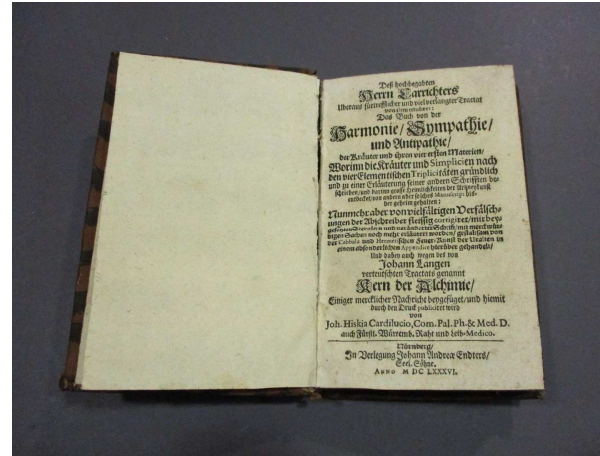 Deß hochbegabten
Herrn Carrichters
Uberaus fürtrefflicher und viel verlangter Tractat
von ihme intituliret:
Das Buch von der
Harmonie/ Sympathie/
und Antipathie/
der Kräuter und ihren vier ersten Materien/
Worinn die Kräuter und Simplicien nach
den vier Elementischen Triplicitäten gründlich
und zu einer Erläuterung seiner andern Schrifften be-
schrieben/ und darinn grosse Heimlichkeiten der Artzneykunst
entdecket/ von andern aber solches Manuscript bis-
her geheim gehalten:
Nunmehr aber von vielfältigen Verfälsch-
ungen der Abschreiber fleissig corrigiret/ mit bey-
und veränderter Schrifft/ mit merckwür-
digen Sachen noch mehr erläutert worden/ gestaltsam von
der Cabbala und Hermetischen Feuer-Kunst der Uralten in
einem absonderlichen Appendice hierüber gehandelt/
Und dabey auch wegen des von
Johann Langen
verteutschten Tractats genannt
Kern der Alchimie/
Einiger mercklicher Nachricht beygefüget/ und hiemit
durch den Druck publiciret wird
von
Joh. Hiskia Cardilucio, Com. Pal. Ph. & Med. D.
auch Fürstl. Würtemb. Raht und Leib-Medico.
Nürnberg/
In Verlegung Johann Andreæ Endters/
Seel. Söhne.
ANNO M DC LXXXVI.